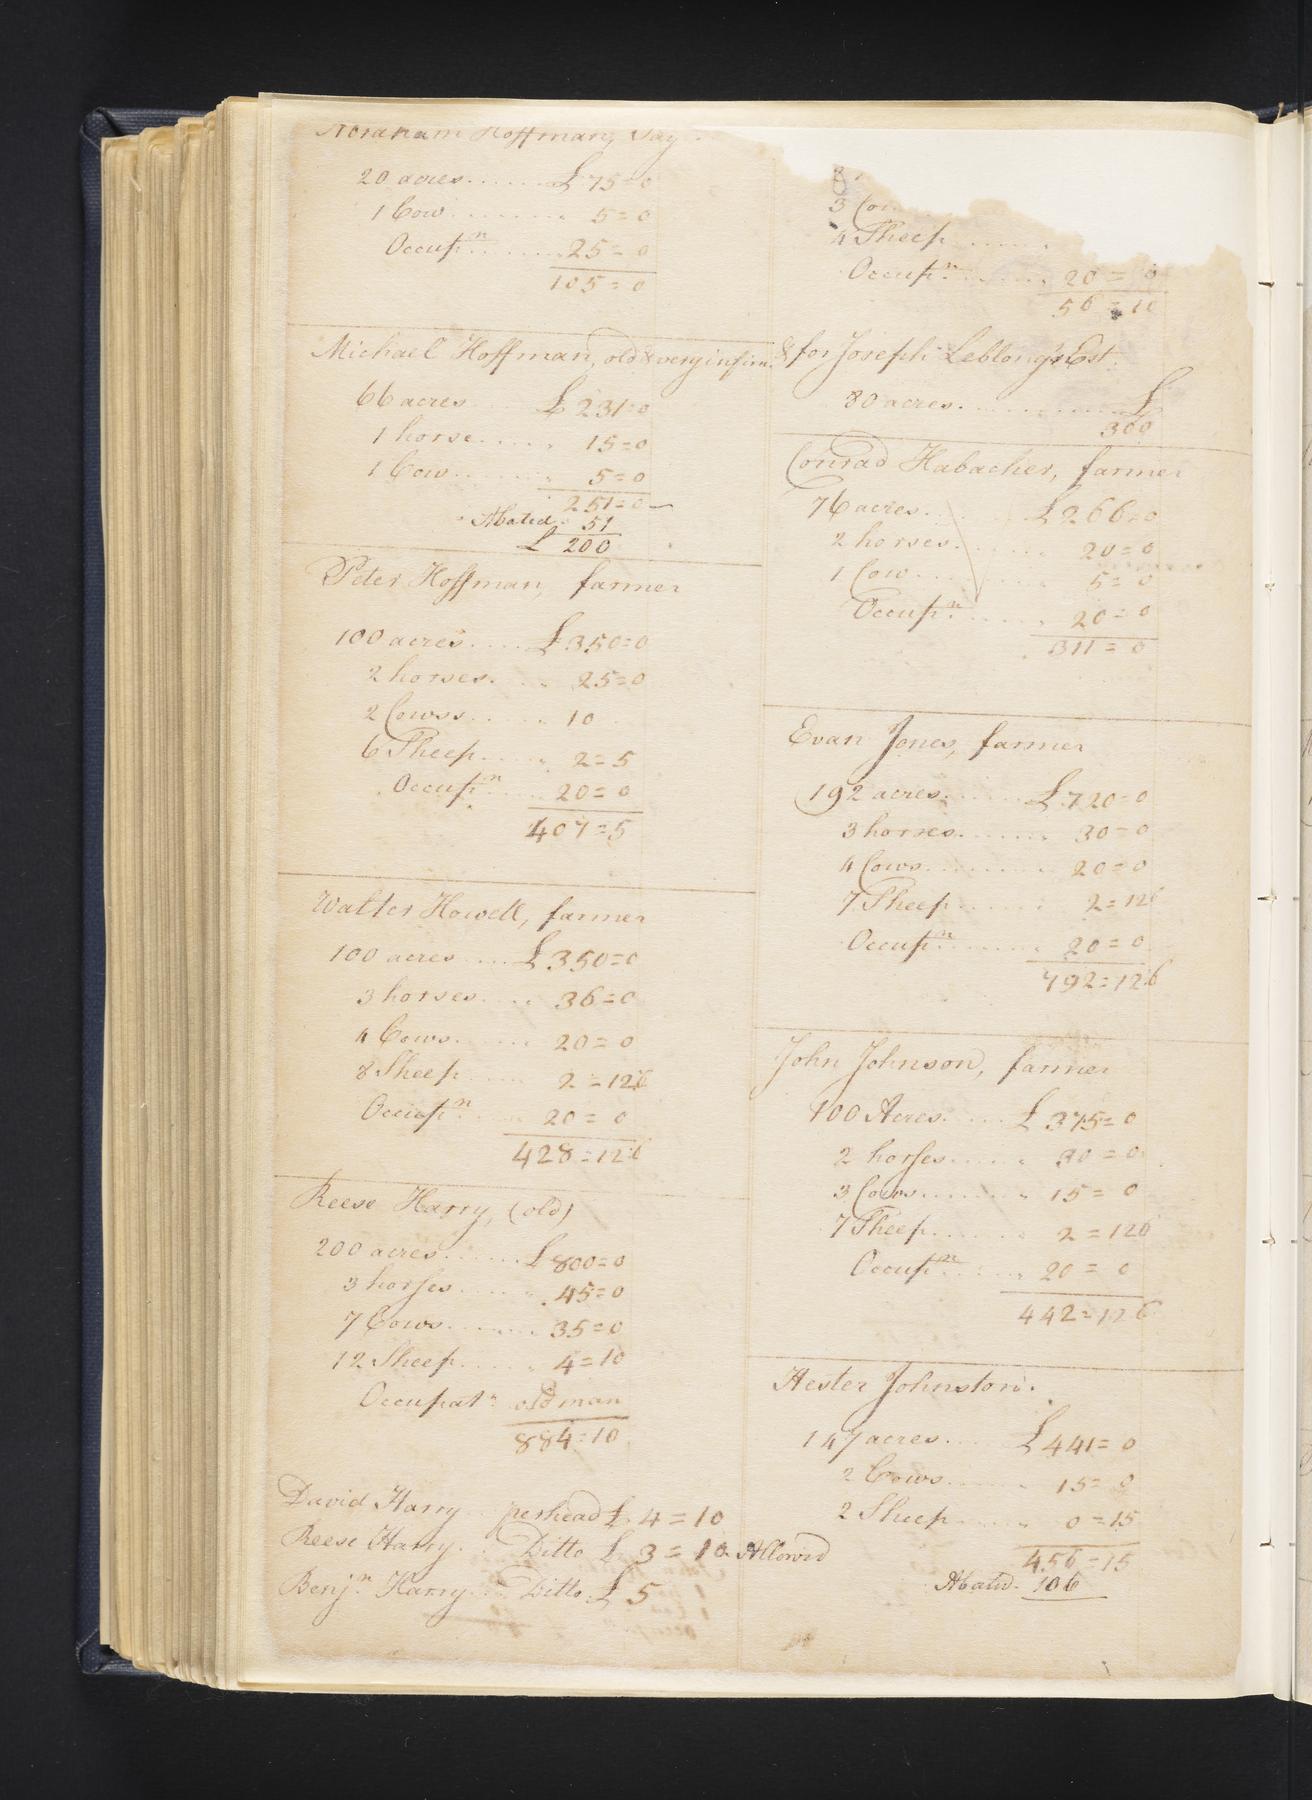 Abraham Hoffman, Tay
20 acres......£ 75=0
1 Cow........ 5=0
Occupn.......25=0
105=0
Michael Hoffman, old & very infirm.
66 acres £ 231=0
1 horse..... 15=0
1 Cow...... 5=0
251=0
Abated. 51
£ 200
Peter Hoffman, farmer
100 acres.....£350=0
2 horses..... 25=0
2 Cows...... 10
6 Sheep..... 2=5
Occupn..... 20=0
407=5
Walter Howell, farmer
100 acres.....£350=0
3 horses..... 36=0
4 Cows...... 20=0
8 Sheep..... 2=126
Occupn..... 20=0
428=126
Reese Harry, (old)
200 acres......£800=0
3 horses...... 45=0
7 Cows........ 35=0
12 Sheep...... 4=10
Occupatn old man
884=10
David Harry perhead £ 4=10
Reese Harry.. Ditto £ 3=10 Allowed
Benjn Harry... Ditto £ 5
3 Cow
4 Sheep......
Occupn....... 20=0
56=10
& for Joseph Leblong's Est.
80 acres...........£
300
Conrad Habacher, farmer
76 acres.......£266=0
2 horses....... 20=0
1 Cow........ 5=0
Occupn....... 20=0
311=0
Evan Jones, farmer
192 acres.......£720=0
3 horses....... 30=0
4 Cows........ 20=0
7 Sheep....... 2=126
Occupn....... 20=0
792=126
John Johnson, farmer
100 Acres......£375=0
2 horses...... 30=0
3 Cows....... 15=0
7 Sheep...... 2=126
Occupn...... 20=0
442=126
Hester Johnston.
147 acres....£441=0
2 Cows...... 15=0
2 Sheep..... 0=15
456=15
Abated. 106